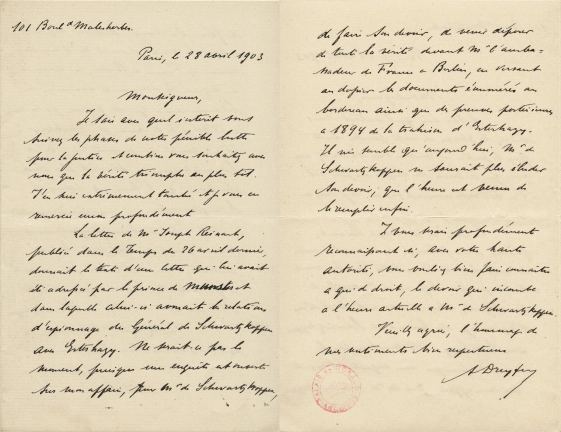 101 Boul^d Malesherbes.
Paris, le 28 avril 1903
Monseigneur,
Je sais avec quel intérêt vous
suivez les phases de notre pénible lutte
pour la justice et combien vous souhaitez avec
nous que la vérité triomphe au plus tôt.
J'en suis extrêmement touché et je vous en
remercie profondément
La lettre de M^r Joseph Reinach,
publiée dans le Temps du 26 avril dernier,
donnait le texte d'une lettre qui lui avait
été adressée par le prince de Munster et
dans laquelle celui-ci avouait les relations
d'espionnage du Général de Schwartzkoppen
avec Esterhazy. Ne serait-ce pas le
moment, puisque une enquête est ouverte
sur mon affaire, pour M^r de Schwartzkoppen,
de faire son devoir, de venir déposer
de toute la vérité devant M^r l'ambas-
sadeur de France à Berlin, en versant
au dossier les documents énumérés au
bordereau ainsi que des preuves postérieures
à 1894 de la trahison d'Esterhazy.
Il me semble qu'aujourd'hui, M^r de
Schwartzkoppen ne saurait plus éluder
son devoir, que l'heure est venue de
le remplir enfin.
Je vous serais profondément
reconnaissant si, avec votre haute
autorité, vous vouliez bien faire connaître
à qui de droit, le devoir qui incombe
à l'heure actuelle à M^r de Schwartzkoppen.
Veuillez agréer, l'hommage de
mes sentiments bien respectueux
A Dreyfus